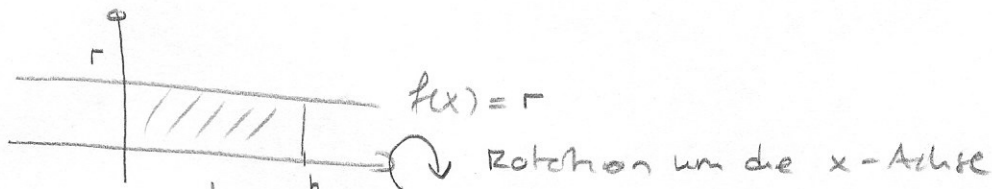 r
f(x) = r
Rotation um die x-Achse
h